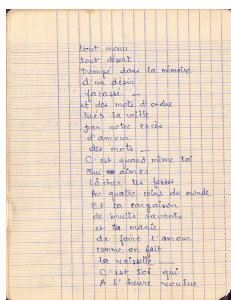 tout menu
tout désert
trempé dans la mémoire
d'un désir
fracassé —
et des mots d'ordre
tués la veille
par notre excès
d'amour
des mots —
C'est quand même toi
qui aimes
lâcher tes
Au quatre coins du monde
Et ta cargaison
de bruits savants
et ta manie
de faire l'amour
comme on fait
la vaisselle —
C'est toi qui
A l'heure voulue